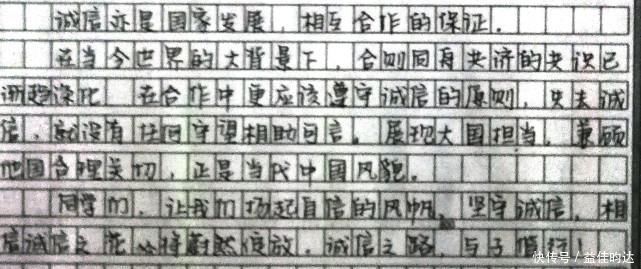 诚信亦是国家发展，相互合作的保证。
在当今世界的大背景下，合则同舟共济的共识已
渐趋深化。在合作中更应该遵守诚信的原则，失去诚
信，就没有任何守望相助可言。展现大国担当，兼顾
他国合理关切，正是当代中国风貌。
同学们，让我们扬起自信的风帆，坚守诚信，相
信诚信之花必将蔚然绽放，诚信之路，与子偕行
快传号/益佳昀达